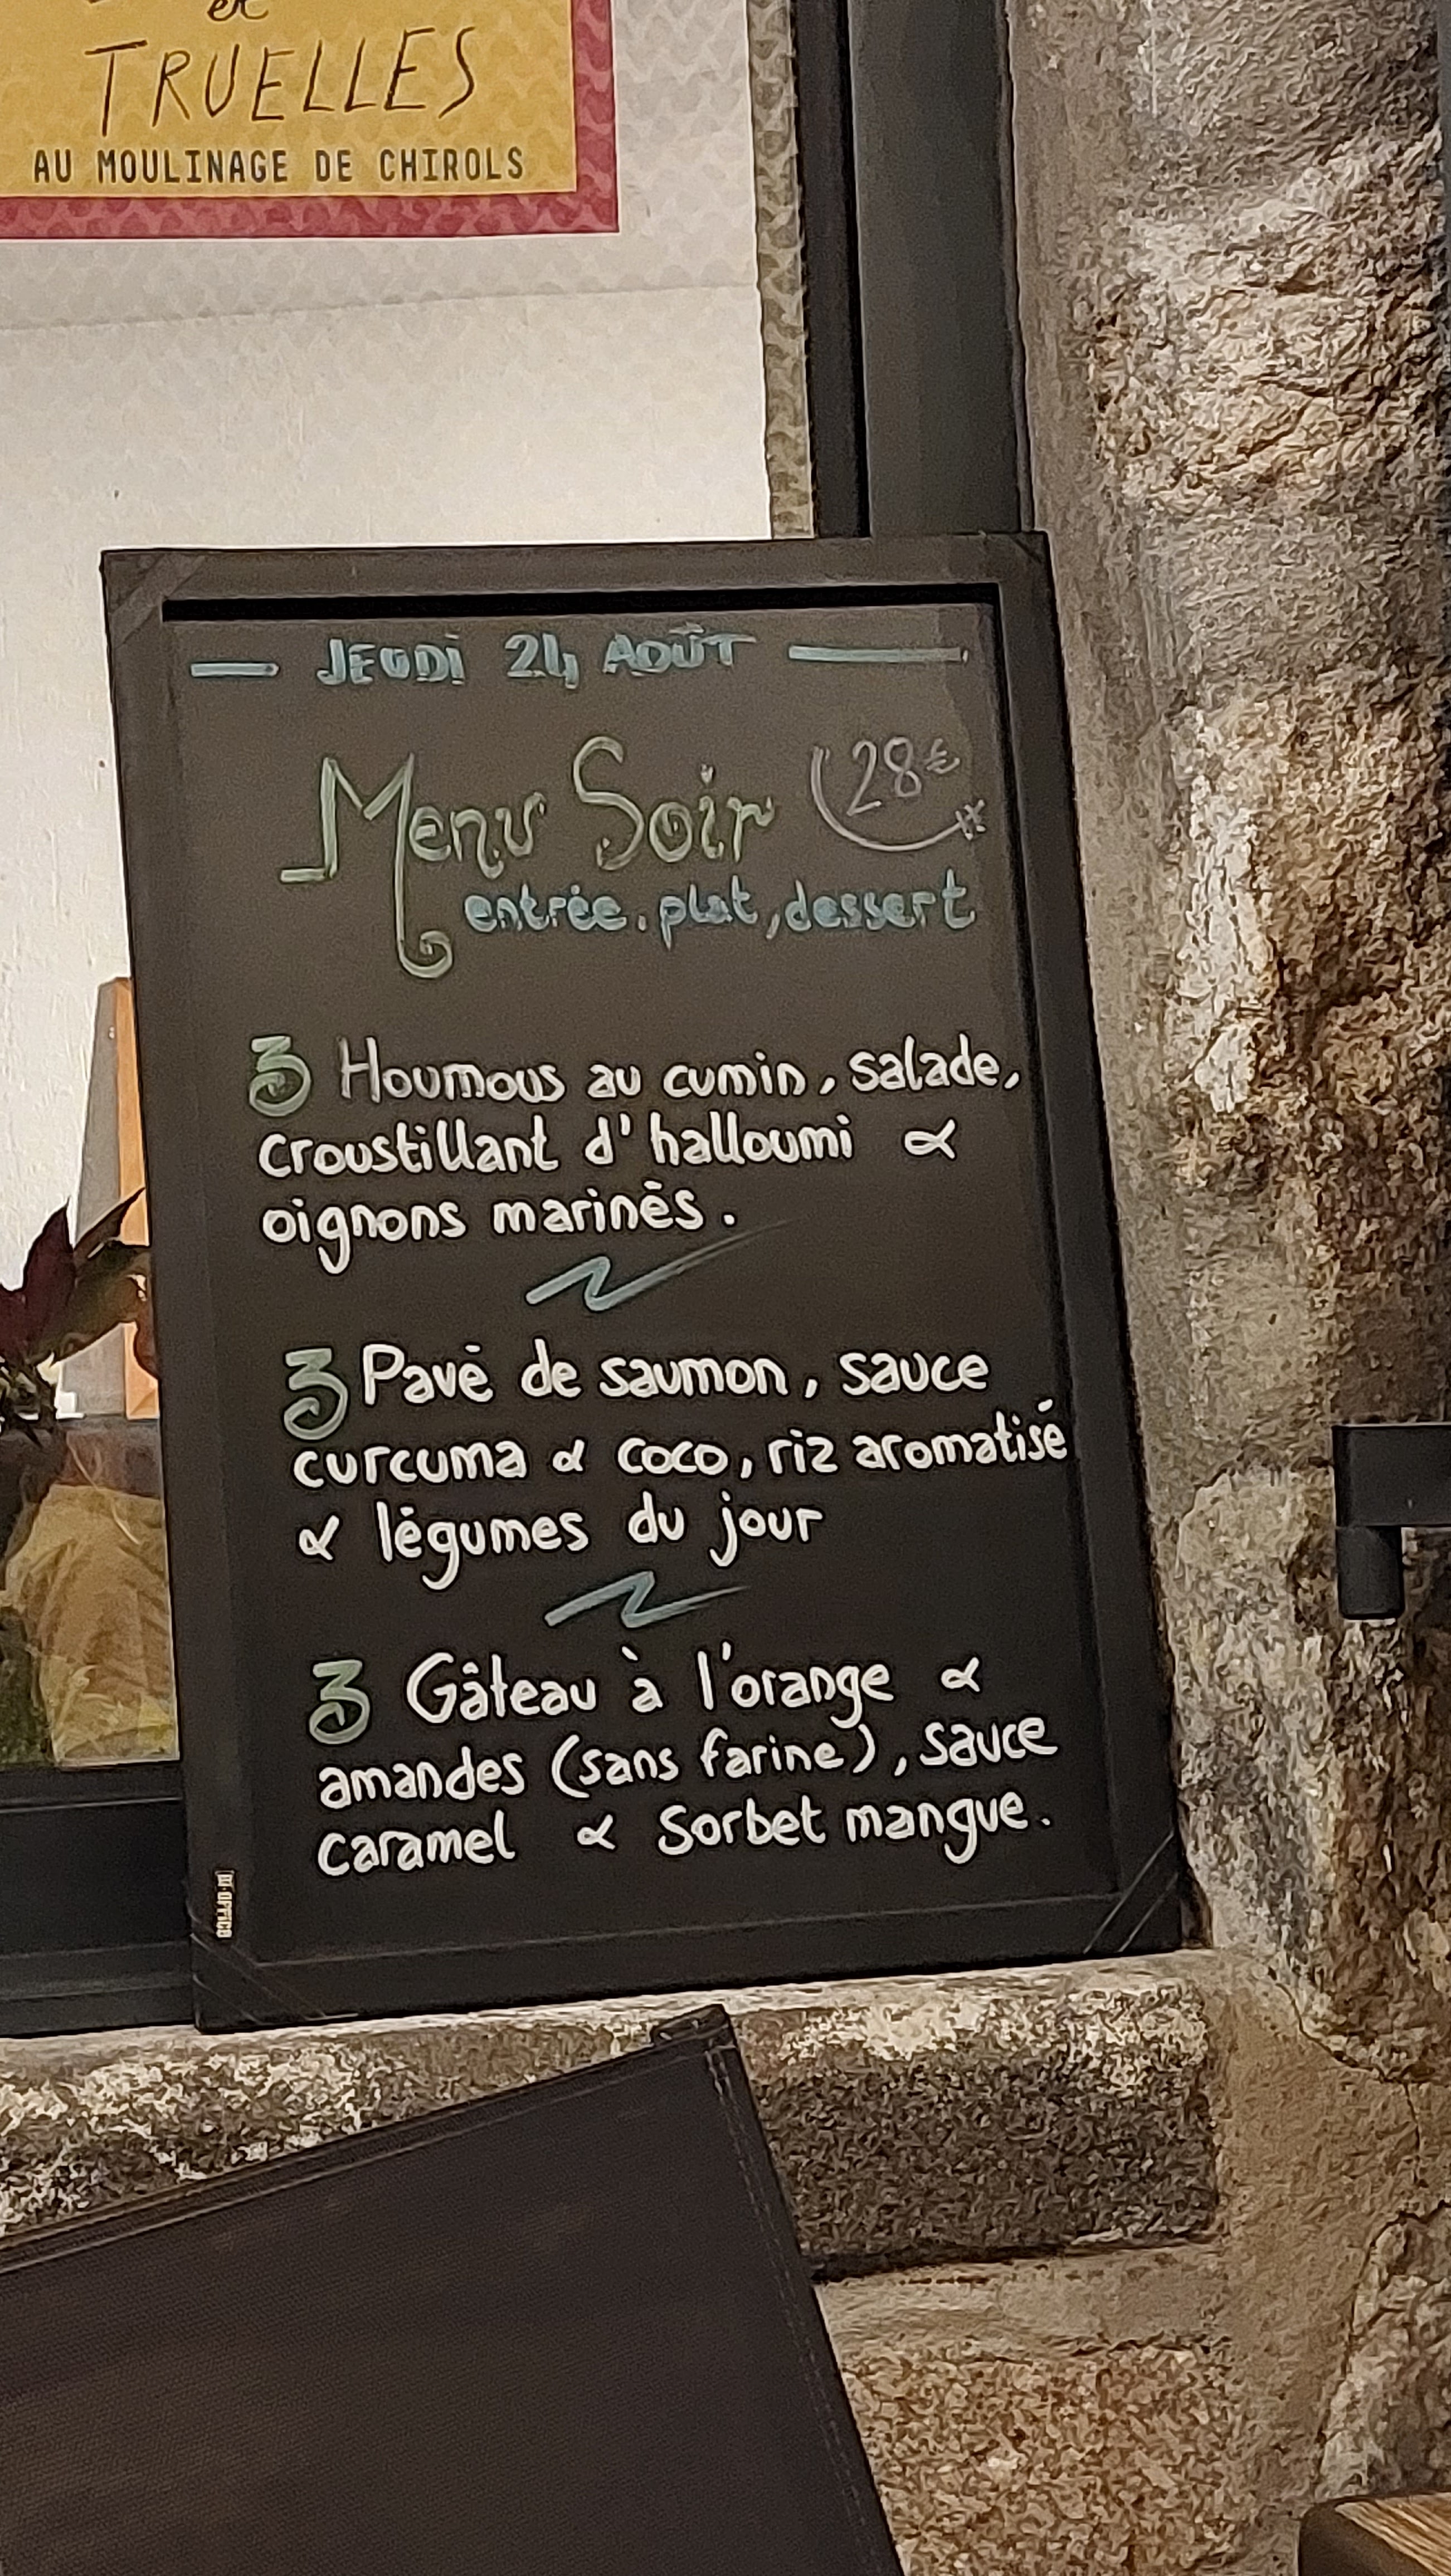 et
TRUELLES
AU MOULINAGE DE CHIROLS
JEUDI 24 AOÛT
Menu Soir 28€
entrée, plat, dessert
3 Houmous au cumin, salade,
croustillant d'halloumi &
oignons marinés.
3 Pavé de saumon, sauce
curcuma & coco, riz aromatisé
& légumes du jour
3 Gâteau à l'orange &
amandes (sans farine), sauce
caramel & Sorbet mangue.